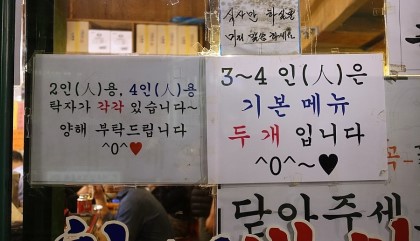 식사만 하실분
2인(人)용, 4인(人)용
탁자가 각각 있습니다~
양해 부탁드립니다
^0^♥
3~4 인(人)은
기본메뉴
두개 입니다
^0^~♥
닫아주세